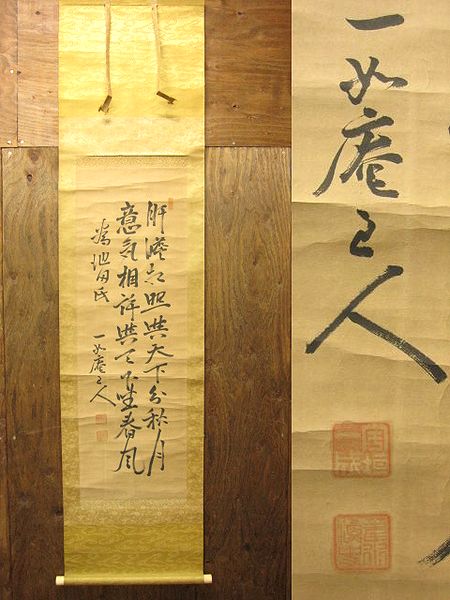 肝膽相照與天下分秋月
意氣相許與天下坐春風
為池田氏
一如庵主人
一如庵主人